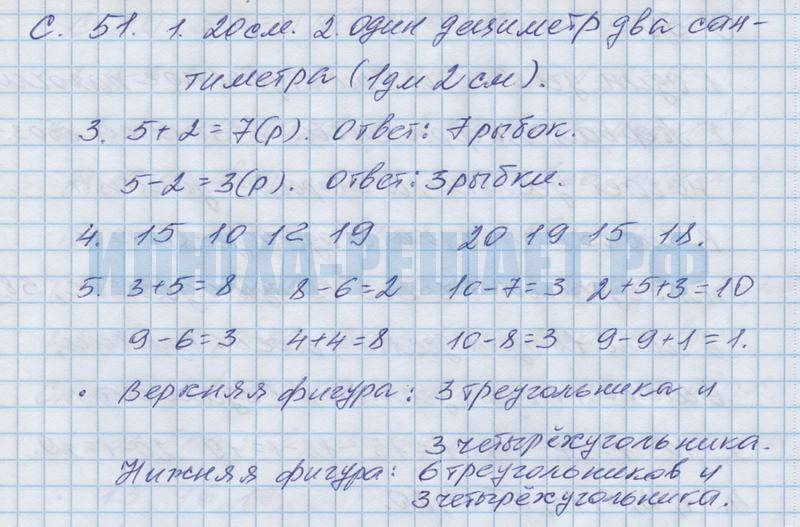 С. 51. 1. 20 см. 2. один дециметр два сан-
тиметра (1 дм 2 см).
3. 5 + 2 = 7 (р). Ответ: 7 рыбок.
5 - 2 = 3 (р). Ответ: 3 рыбки.
4. 15 10 12 19 20 19 15 18.
ИЛЮХА-РЕШАЕТ.РФ
5. 3+5=8 8-6=2 10-7=3 2+5+3=10
9-6=3 4+4=8 10-8=3 9-9+1=1.
• Верхняя фигура: 3 треугольника и
3 четырёхугольника.
Нижняя фигура: 6 треугольников и
3 четырёхугольника.